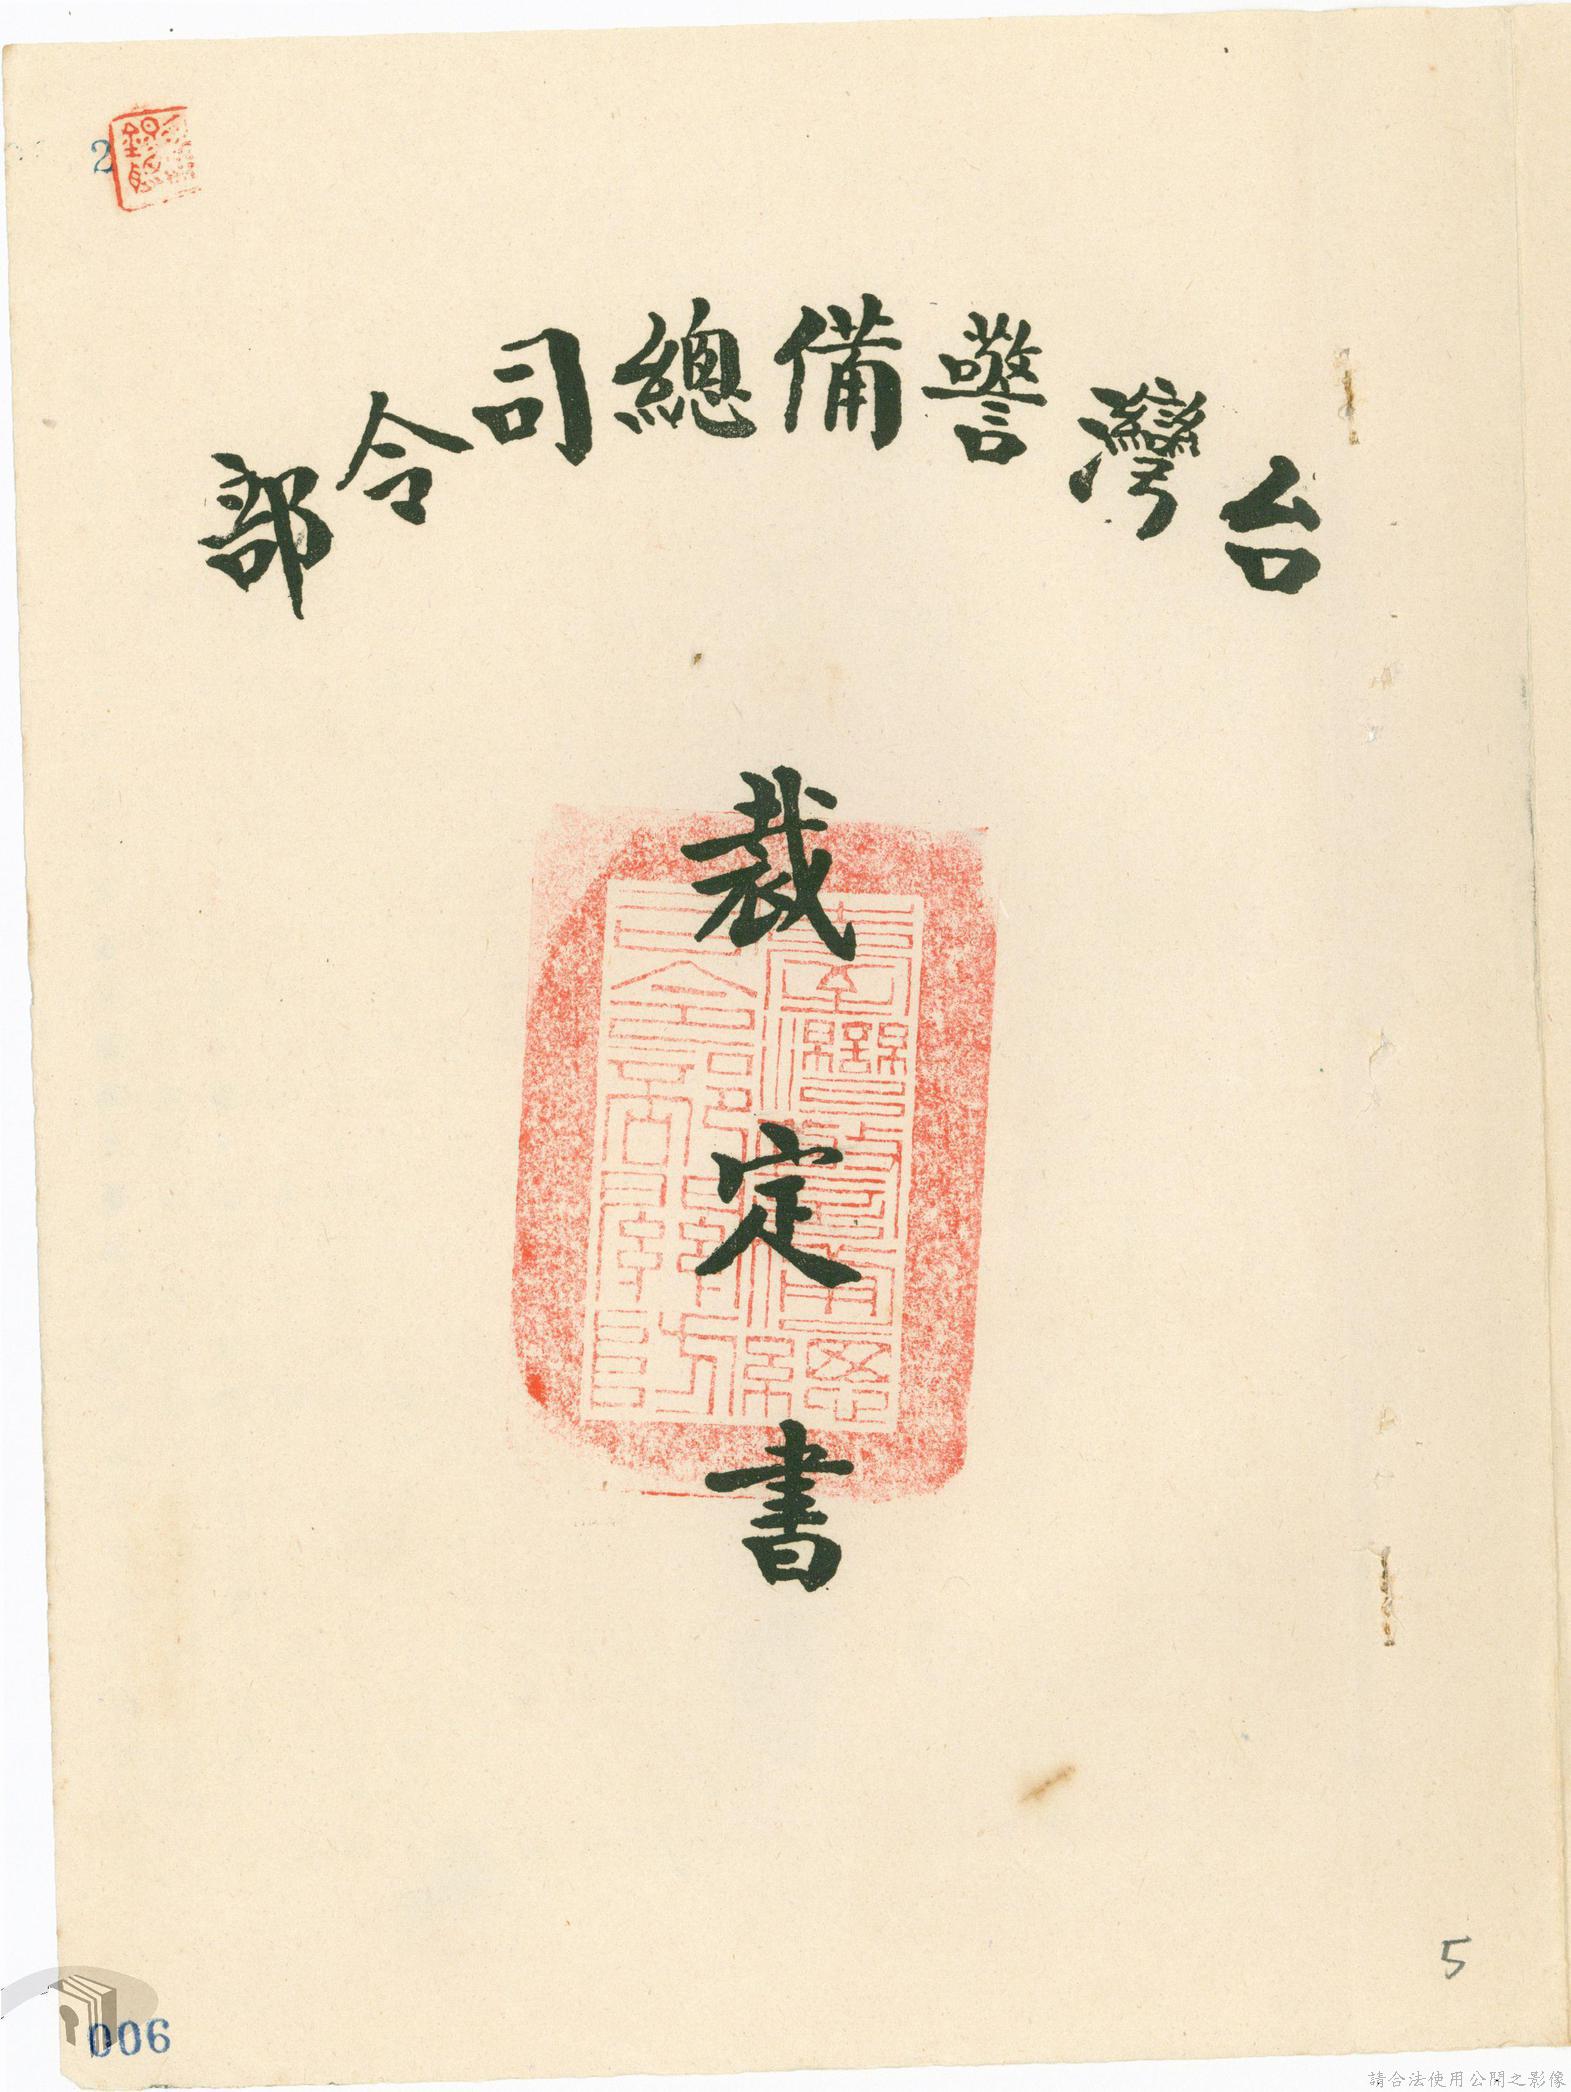 2
台灣警備總司令部
裁定書
5
006
請合法使用公開之影像